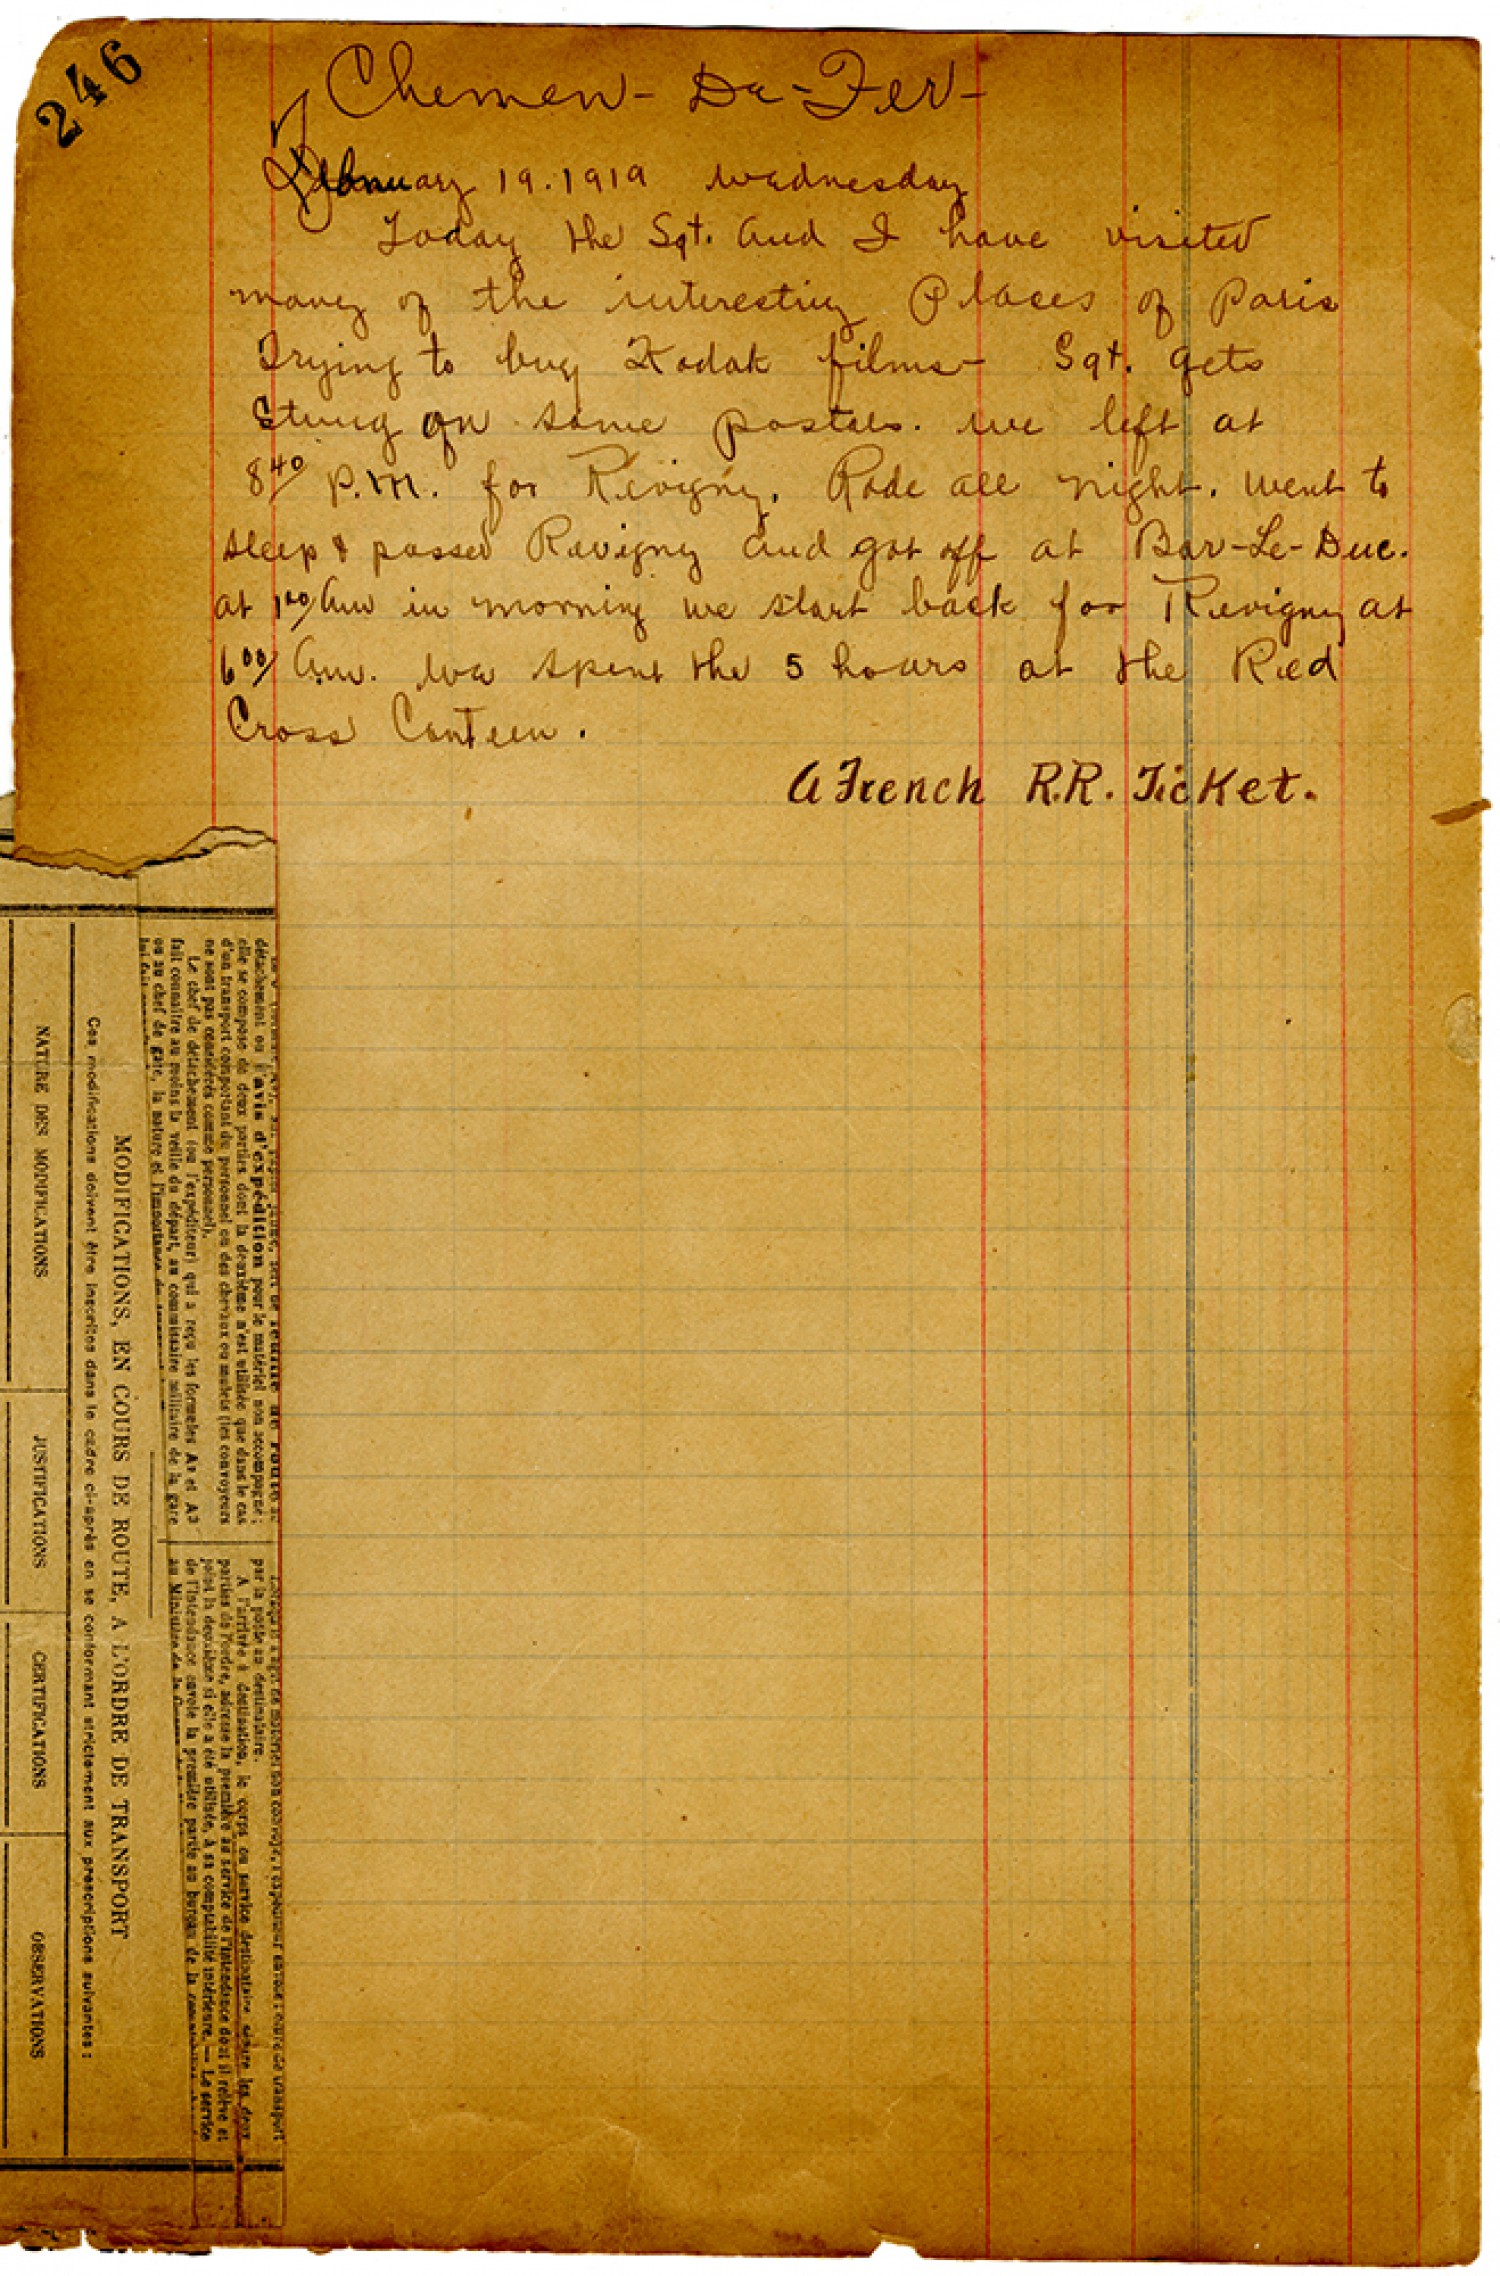 246
Chemen - Du - Fer -
February 19. 1919 Wednesday
Today the Sgt. and I have visited
many of the interesting Places of Paris
Trying to buy Kodak films - Sgt. gets
Stung on some postals. we left at
8 40/ P.M. for Revigny. Rode all night. Went to
sleep & passed Revigny and got off at Bar-Le-Duc.
at 1 00/ Am in morning we start back for Revigny at
6 00/ Am. We spent the 5 hours at the Red
Cross Canteen.
A French R.R. Ticket.
détachement ou l'avis d'expédition pour le matériel non accompagné;
elle se compose de deux parties dont la deuxième n'est utilisée que dans le cas
d'un transport comportant du personnel ou des chevaux ou mulets (les convoyeurs
ne sont pas considérés comme personnel).
Le chef de détachement (ou l'expéditeur) qui a reçu les formules A1 et A2
fait connaître au moins la veille du départ, au commissaire militaire de la gare
ou au chef de gare, la nature et l'importance
par la poste au destinataire.
A l'arrivée à destination, le corps ou service destinataire les deux
parties de l'ordre, adresse la première au service de l'intendance dont il relève et
joint la deuxième si elle a été utilisée, à sa comptabilité intérieure. — Le service
de l'intendance envoie la première partie au bureau de la
au Ministère de la
MODIFICATIONS, EN COURS DE ROUTE, A L'ORDRE DE TRANSPORT
Ces modifications doivent être inscrites dans le cadre ci-après en se conformant strictement aux prescriptions suivantes :
NATURE DES MODIFICATIONS
JUSTIFICATIONS
CERTIFICATIONS
OBSERVATIONS